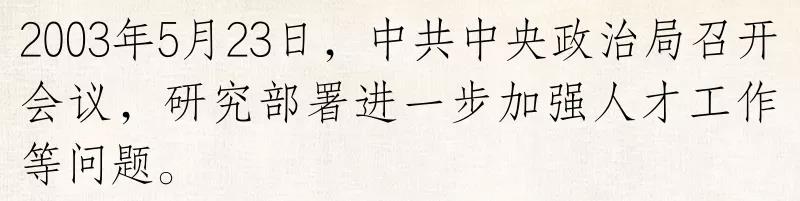 2003年5月23日，中共中央政治局召开
会议，研究部署进一步加强人才工作
等问题。